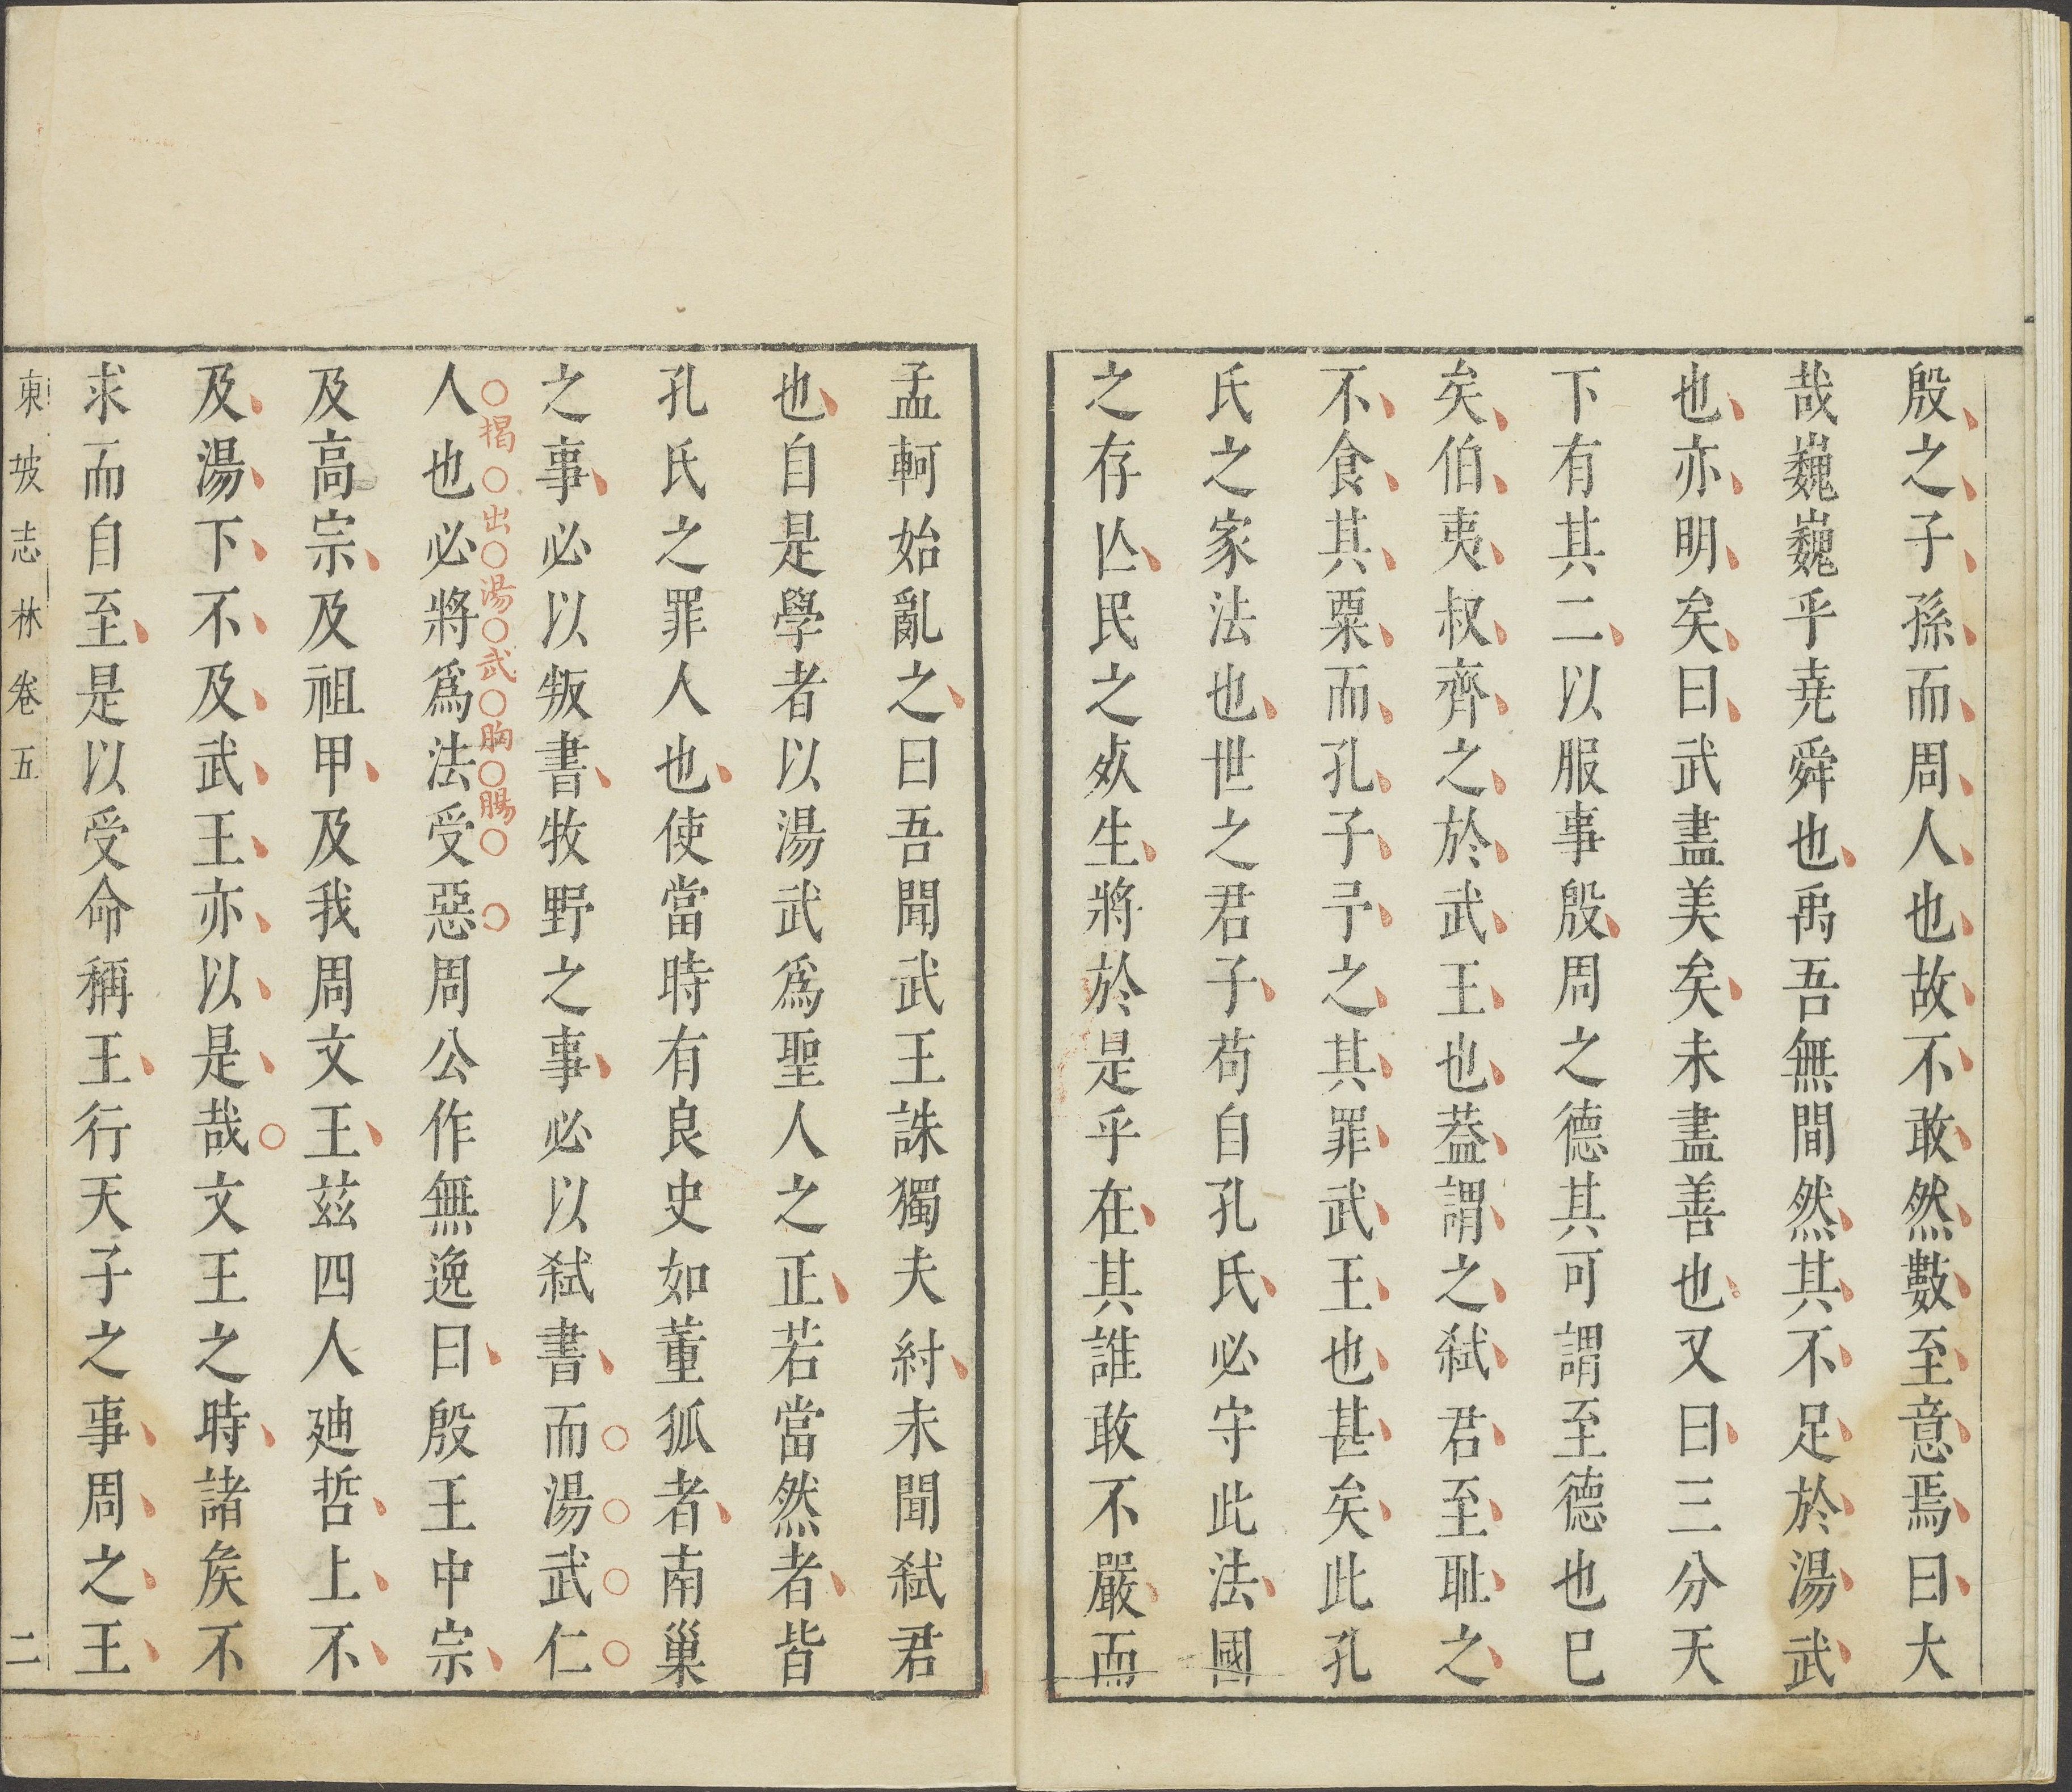 殷之子孫而周人也故不敢然數至意焉曰大
哉巍巍乎尭舜也禹吾無間然其不足於湯武
也亦明矣曰武盡美矣未盡善也又曰三分天
下有其二以服事殷周之德其可謂至德也巳
矣伯夷叔齊之於武王也葢謂之弑君至耻之
不食其粟而孔子予之其罪武王也甚矣此孔
氏之家法也世之君子苟自孔氏必守此法國
之存亾民之𣦸生將於是乎在其誰敢不嚴而
孟軻始亂之曰吾聞武王誅獨夫紂未聞弑君
也自是學者以湯武爲聖人之正若當然者皆
孔氏之罪人也使當時有良史如董狐者南巢
之事必以叛書牧野之事必以弑書而湯武仁
揭出湯武胸腸
人也必將爲法受惡周公作無逸曰殷王中宗
及高宗及祖甲及我周文王茲四人廸哲上不
及湯下不及武王亦以是哉文王之時諸矦不
求而自至是以受命稱王行天子之事周之王
東坡志林卷五
二